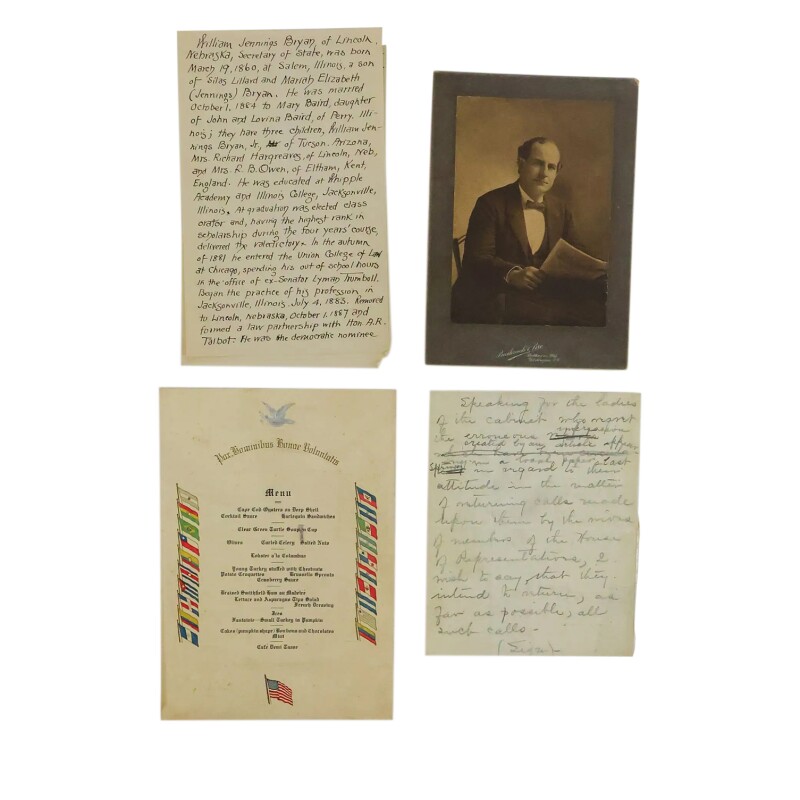 William Jennings Bryan, of Lincoln,
Nebraska, Secretary of State, was born
March 19, 1860, at Salem, Illinois, a son
of Silas Lillard and Mariah Elizabeth
(Jennings) Bryan. He was married
October 1, 1884 to Mary Baird, daughter
of John and Lovina Baird, of Perry, Illi-
nois; they have three children, William Jen-
nings Bryan, Jr., of Tucson, Arizona,
Mrs. Richard Hargreaves, of Lincoln, Neb.,
and Mrs. R. B. Owen, of Eltham, Kent,
England. He was educated at Whipple
Academy and Illinois College, Jacksonville,
Illinois. At graduation was elected class
orator and, having the highest rank in
scholarship during the four years' course,
delivered the valedictory. In the autumn
of 1881 he entered the Union College of Law
at Chicago, spending his out of school hours
in the office of ex-Senator Lyman Trumbull.
Began the practice of his profession in
Jacksonville, Illinois July 4, 1883. Removed
to Lincoln, Nebraska, October 1, 1887 and
formed a law partnership with Hon. A.R.
Talbot. He was the democratic nominee
Pax Hominibus Bonae Voluntatis
Menu
Cape Cod Oysters on Deep Shell
Cocktail Sauce Harlequin Sandwiches
Clear Green Turtle Soup in Cup
Olives Curled Celery Salted Nuts
Lobster a'la Columbus
Young Turkey stuffed with Chestnuts
Potato Croquettes Brussells Sprouts
Cranberry Sauce
Braised Smithfield Ham au Madeira
Lettuce and Asparagus Tips Salad
French Dressing
Ices
Fantaisie—Small Turkey in Pumpkin
Cakes (pumpkin shape) Bon bons and Chocolates
Mint
Café Demi Tasse
Speaking for the ladies
of the cabinet who resent
the erroneous impression
created by an article appear-
ing in a weekly paper
in regard to their
attitude in the matter
of returning calls made
upon them by the wives
of members of the House
of Representatives, I
wish to say that they
intend to return, as
far as possible, all
such calls.
(Sign)